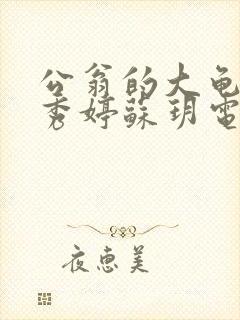 公翁的大龟
秀婷蘇玥電
夜惠美